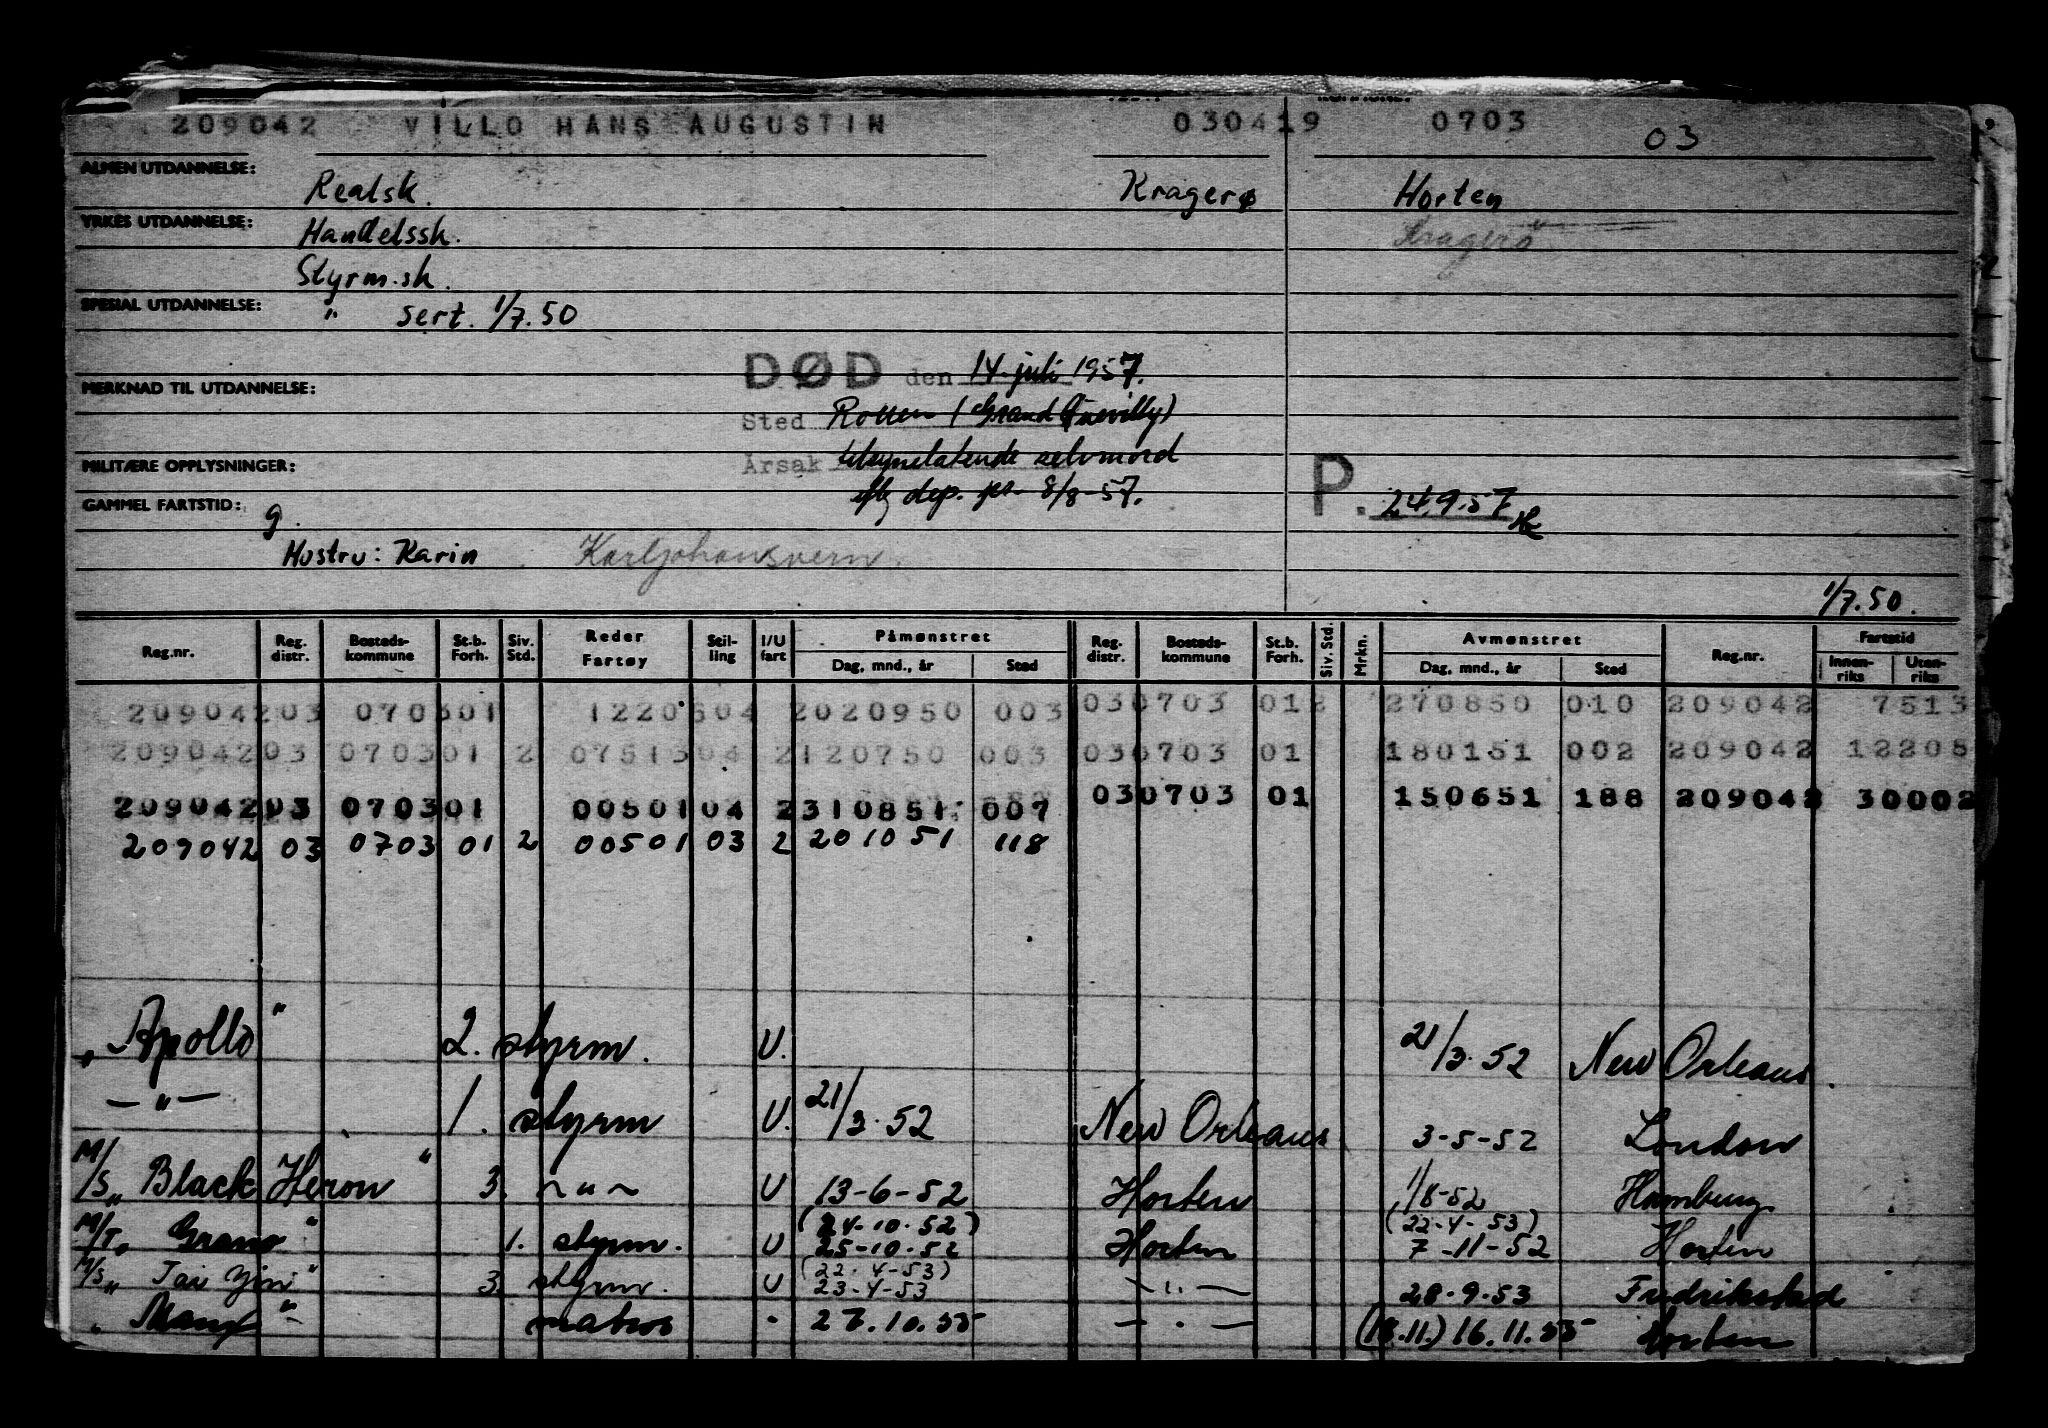 209042 VILLO HANS AUGUSTIN 030419 0703 03
ALMEN UTDANNELSE: Realsk. Kragerø Horten
YRKES UTDANNELSE: Handelssk. Kragerø
Styrm.sk.
SPESIAL UTDANNELSE: " sert. 1/7.50
DØD den 14. juli 1957.
MERKNAD TIL UTDANNELSE:
Sted Rouen (Grand Quevilly)
MILITÆRE OPPLYSNINGER: Årsak tilsynelatende selvmord
eftr dep. 8/8-57. P. 24.9.57
GAMMEL FARTSTID: g.
Hustru: Karin Karljohansvern.
1/7.50.
Reg.nr. Reg. distr. Bosteds-kommune St.b. Forh. Siv. Std. Reder Fartøy Stil-ling I/U fart Påmønstret Dag, mnd., år Sted Reg. distr. Bosteds-kommune St.b. Forh. Siv. Std. Mrkn. Avmønstret Dag, mnd., år Sted Reg.nr. Fartstid Innen-riks Uten-riks
209042 03 0703 01 12206 04 2 020950 003 03 0703 01 2 270850 010 209042 7513
209042 03 0703 01 2 07513 04 2 120750 003 03 0703 01 180151 002 209042 12206
209042 03 0703 01 00501 04 2 310851 007 03 0703 01 150651 188 209042 30002
209042 03 0703 01 2 00501 03 2 201051 118
„Apollo" 2. styrm. U. 21/3.52 New Orleans.
—"— 1. styrm U. 21/3.52 New Orleans 3-5-52 London
M/S „Black Heron" 3. ~"~ U 13-6-52 Horten 1/8-52 Hamburg
M/T „Grano" 1. styrm. U (24-10-52) 25-10-52 Horten (22-4-53) 7-11-52 Horten
M/S „Tai Yin" 3 styrm. U (22.4-53) 23-4-53 —"— 28.9.53 Fredrikstad
" matros " 27.10.55 —"— (18.11.) 16.11.55 Horten